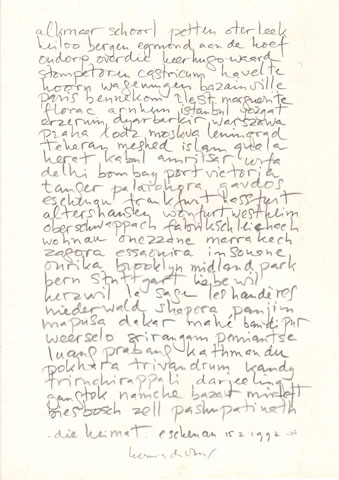 alkmaar schoorl petten oterleek
heiloo bergen egmond aan de hoef
oudorp overdie heerhugowaard
stompetoren castricum havelte
hoorn wageningen bazainville
paris bennekom zeist marguerite
florac arnhem istanbul yozgat
erzerum dyarbarkir warszawa
praha lodz moskva leningrad
teheran meshed islam quala
herat kabul amritsar urfa
delhi bombay port victoria
tanger palaiohora gavdos
eschenau frankfurt hassfurt
altershausen wonfurt westheim
oberschwappach fabrikschleichach
wohnau onezzane marrakech
zagora essaouira imsouane
ourika brooklyn midland park
bern stuttgart
herzwil la sage les haudères
niederwald shapora panjim
mapusa dakar mahé bandipur
weerselo srirangam
luang prabang kathmandu
pokhara trivandrum kandy
tiruchirappali darjeeling
gangtok namche bazar mirleft
biesbosch zell pashupatinath
- die heimat. eschenau 15 2 1992 -
herman de vries